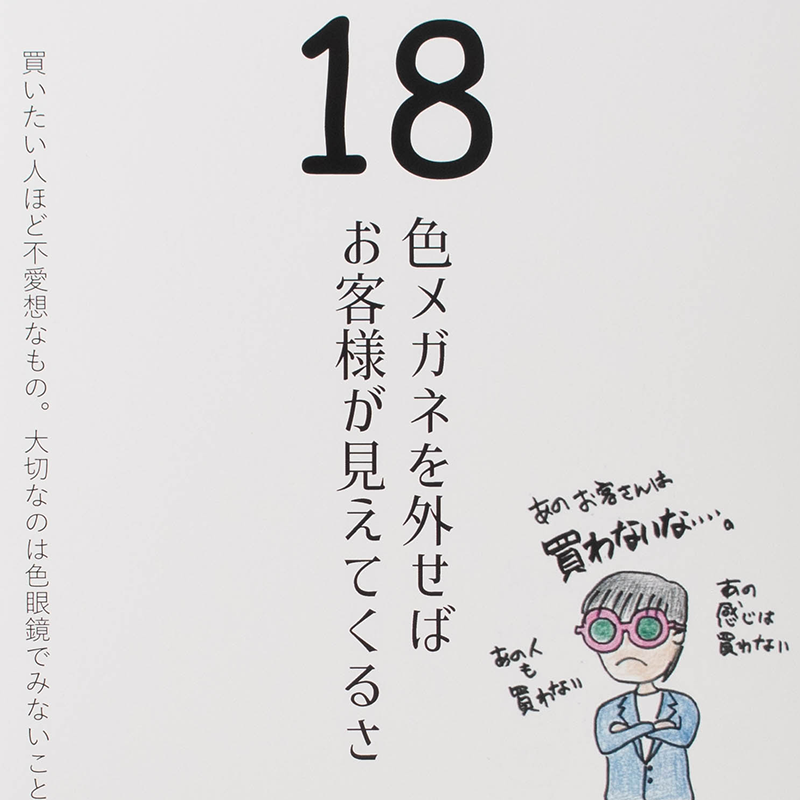 18
色メガネを外せば
お客様が見えてくるさ
買いたい人ほど不愛想なもの。大切なのは色眼鏡でみないこと
あのお客さんは
買わないな….。
あの
感じは
買わない
あの人
も
買わない